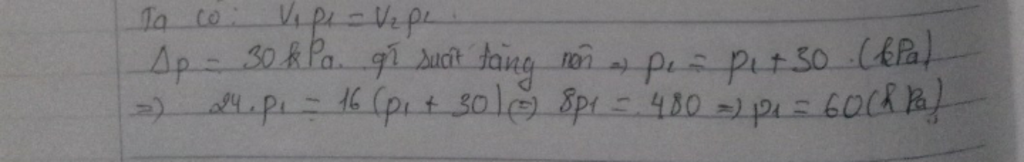 Ta có: V₁p₁ = V₂p₂.
Δp = 30 kPa. suất tăng nên ⇒ p₂ = p₁ + 30 (kPa)
⇒ 24.p₁ = 16(p₁ + 30) ⇔ 8p₁ = 480 ⇒ p₁ = 60(kPa)